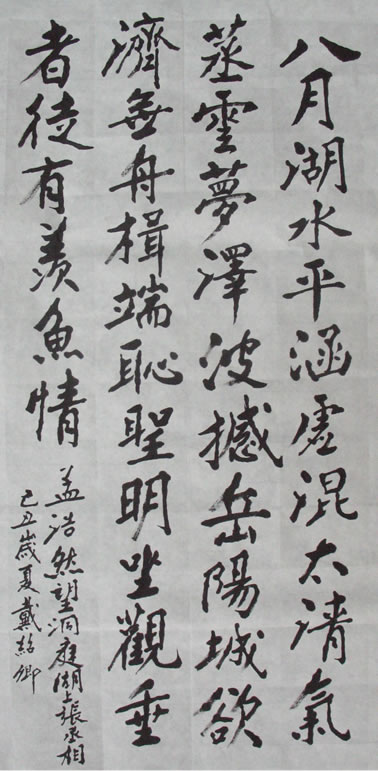 八月湖水平涵虛混太清氣
蒸雲夢澤波撼岳陽城欲
濟無舟楫端恥聖明坐觀垂
者徒有羨魚情
孟浩然望洞庭湖張丞相
己丑歲夏戴紹卿